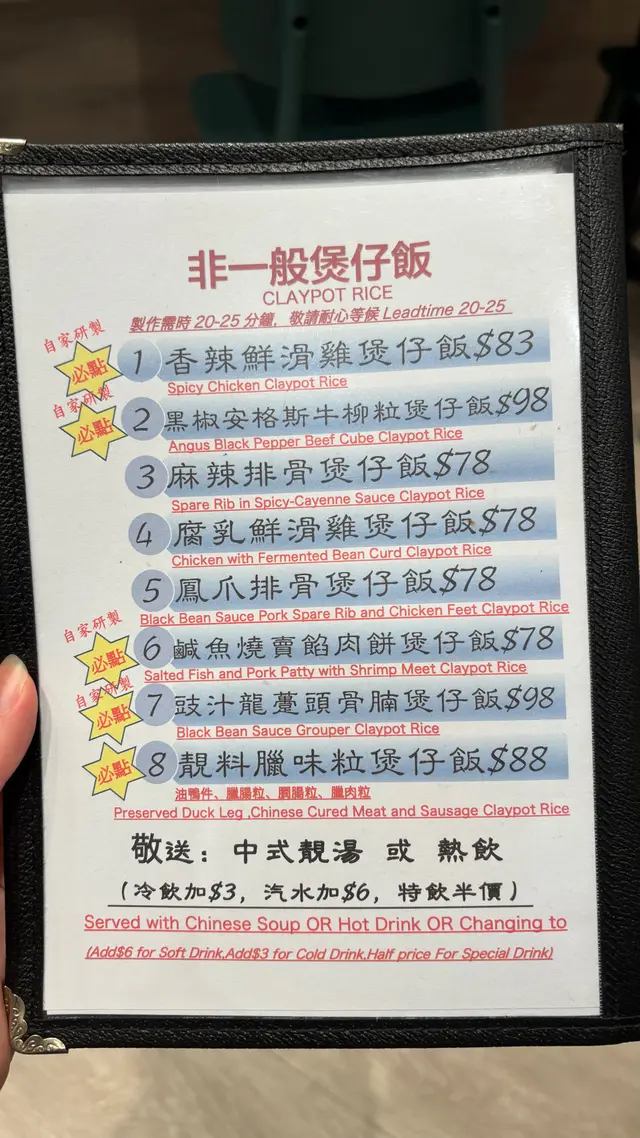 非一般煲仔飯
CLAYPOT RICE
製作需時 20-25 分鐘，敬請耐心等候 Leadtime 20-25
自家研製
必點
1 香辣鮮滑雞煲仔飯$83
Spicy Chicken Claypot Rice
自家研製
必點
2 黑椒安格斯牛柳粒煲仔飯$98
Angus Black Pepper Beef Cube Claypot Rice
3 麻辣排骨煲仔飯$78
Spare Rib in Spicy-Cayenne Sauce Claypot Rice
4 腐乳鮮滑雞煲仔飯$78
Chicken with Fermented Bean Curd Claypot Rice
5 鳳爪排骨煲仔飯$78
Black Bean Sauce Pork Spare Rib and Chicken Feet Claypot Rice
自家研製
必點
6 鹹魚燒賣餡肉餅煲仔飯$78
Salted Fish and Pork Patty with Shrimp Meet Claypot Rice
自家研製
必點
7 豉汁龍躉頭骨腩煲仔飯$98
Black Bean Sauce Grouper Claypot Rice
必點
8 靚料臘味粒煲仔飯$88
油鴨件、臘腸粒、膶腸粒、臘肉粒
Preserved Duck Leg ,Chinese Cured Meat and Sausage Claypot Rice
敬送：中式靚湯 或 熱飲
（冷飲加$3，汽水加$6，特飲半價）
Served with Chinese Soup OR Hot Drink OR Changing to
(Add$6 for Soft Drink,Add$3 for Cold Drink,Half price For Special Drink)